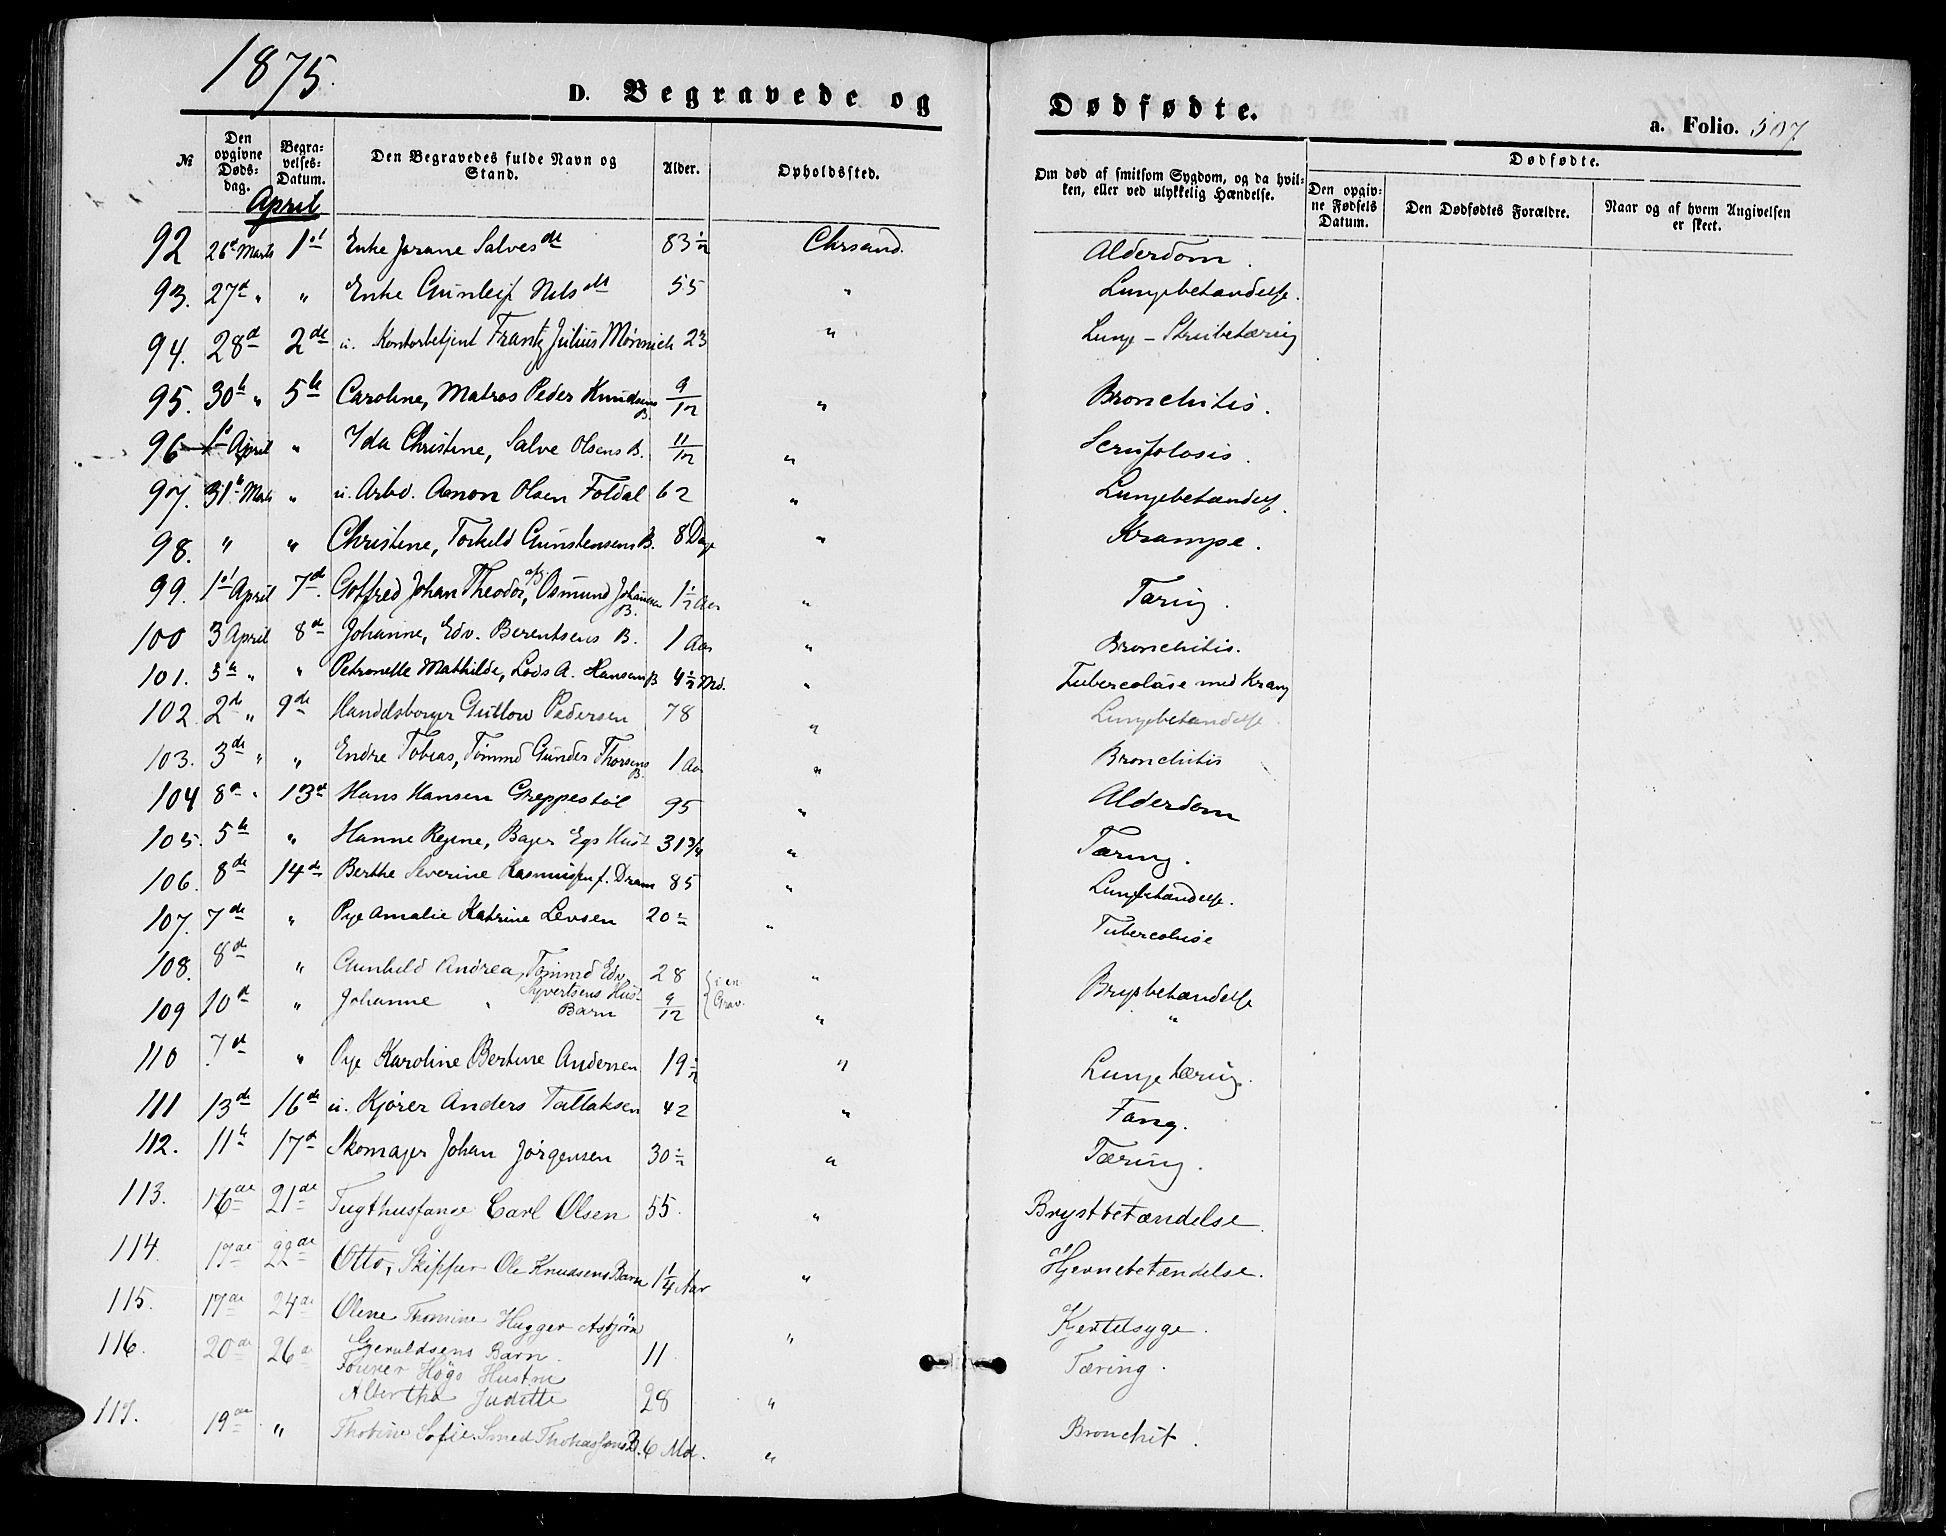 1875.
D. Begravede og Dødfødte.
a. Folio. 507
№ | Den opgivne Dødsdag. | Begravelses-Datum. | Den Begravedes fulde Navn og Stand. | Alder. | Opholdssted. | Om død af smitsom Sygdom, og da hvilken, eller ved ulykkelig Hændelse. | Dødfødte. | Den opgivne Fødsels Datum. | Den Dødfødtes Forældre. | Naar og af hvem Angivelsen er skeet.
April
92 26de Marts 1st Enke Jorane Salvesdt 83 1/2 Chrsand. Alderdom.
93. 27d " " Enke Gunleif Nelsdt 55 " Lungebetændelse.
94. 28d 2de u. Kontorbetjent Frantz Julius Mønnich 23 " Lunge-Strubetæring
95. 30te " 5te Caroline, Matros Peder Knudsens B. 9/12 " Bronchitis.
96 1st April " Ida Christine, Salve Olsens B. 11/12 " Scrufolosis.
97. 31te Marts " u. Arbd. Aanon Olsen Foldal 62 " Lungebetændelse.
98. " " Christine, Torkild Gunstensens B. 8 Dage " Krampe.
99. 1st April 7de Gotfred Johan Theodor, Osmund Johansen B. 1 1/2 Aar " Tæring.
100 3 April 8de Johanne, Edv. Berentsens B. 1 Aar " Bronchitis.
101. 5te " " Petronelle Mathilde, Lods A. Hansens B 4 1/2 Md. " Tubercolose med Kramp
102 2de " 9de Handelsborger Guttow Pedersen 78 " Lungebetændelse.
103. 3de " " Endre Tobias, Tømmd Gunder Thorsens B. 1 Aar " Bronchitis
104 8de " 13de Hans Hansen Greppestøl 95 " Alderdom
105. 5te " Hanne Regine, Bager Egs Hust 31 3/4 " Tæring.
106. 8de 14de Berthe Severine Rasmussen f. Dram 85 " Lungebetændelse.
107. 7de " Pige Amalie Katrine Levsen 20 1/2 " Tubercolose
108. 8de " Gunhild Andrea, Tømmd Edv. Syvertsens Hust 28 } i en Grav. " Brystbetændelse
109 10de " Johanne " Barn 9/12 " "
110 7de " Pige Karoline Bertine Andersen 19 1/2 " Lungetæring.
111 13de 16de u. Kjører Anders Tallaksen 42 " Fang.
112. 11te 17de Skomager Johan Jørgensen 30 1/2 " Tæring.
113. 16de 21de Tugthusfange Carl Olsen 55. " Brystbetændelse.
114. 17de 22de Otto, Skipper Ole Knudsens Barn 1 1/4 Aar " Hjernebetændelse.
115. 17de 24de Olene Thomine Hugger Asbjørn Gjeruldsens Barn. 11 " Kjertelsyge.
116. 20de 26de Tourer Høgs Hustru Albertha Judette 28 " Tæring.
117. 19de " Thobine Sofie. Smed B. 6 Md. " Bronchit.